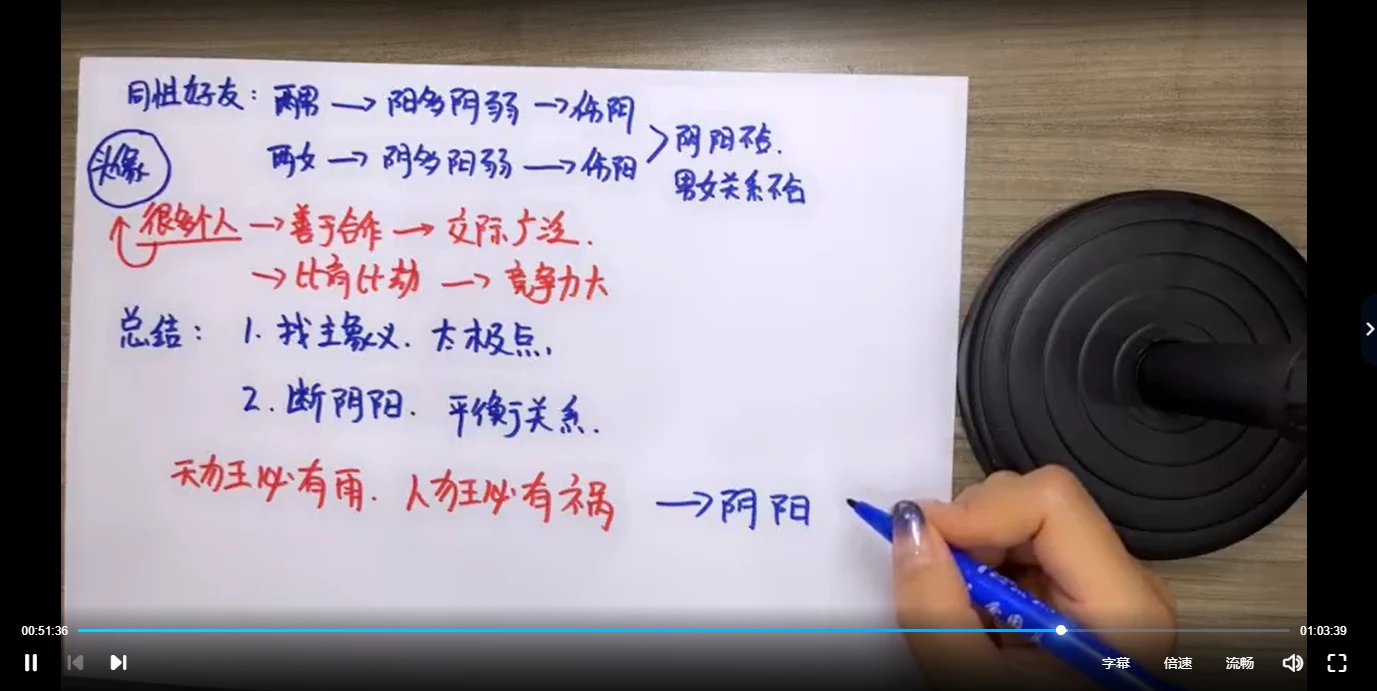 同性好友：两男→阳多阴弱→伤阴
两女→阴多阳弱→伤阳
阴阳不合.
男女关系不合
头像
很多个人→善于合作→交际广泛.
→比肩比劫→竞争力大
总结：1.找主象义.太极点.
2.断阴阳.平衡关系.
天力王必有雨.人力王必有祸→阴阳
00:51:36
01:03:39
字幕 倍速 流畅